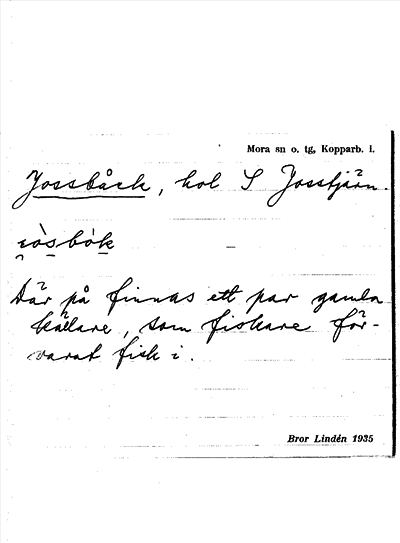 Mora sn o. tg, Kopparb. l.
Jossbåck, hol S Josstjärn.
i̯òsbók
Där på finnas ett par gamla
källare, som fiskare för-
varat fisk i.
Bror Lindén 1935